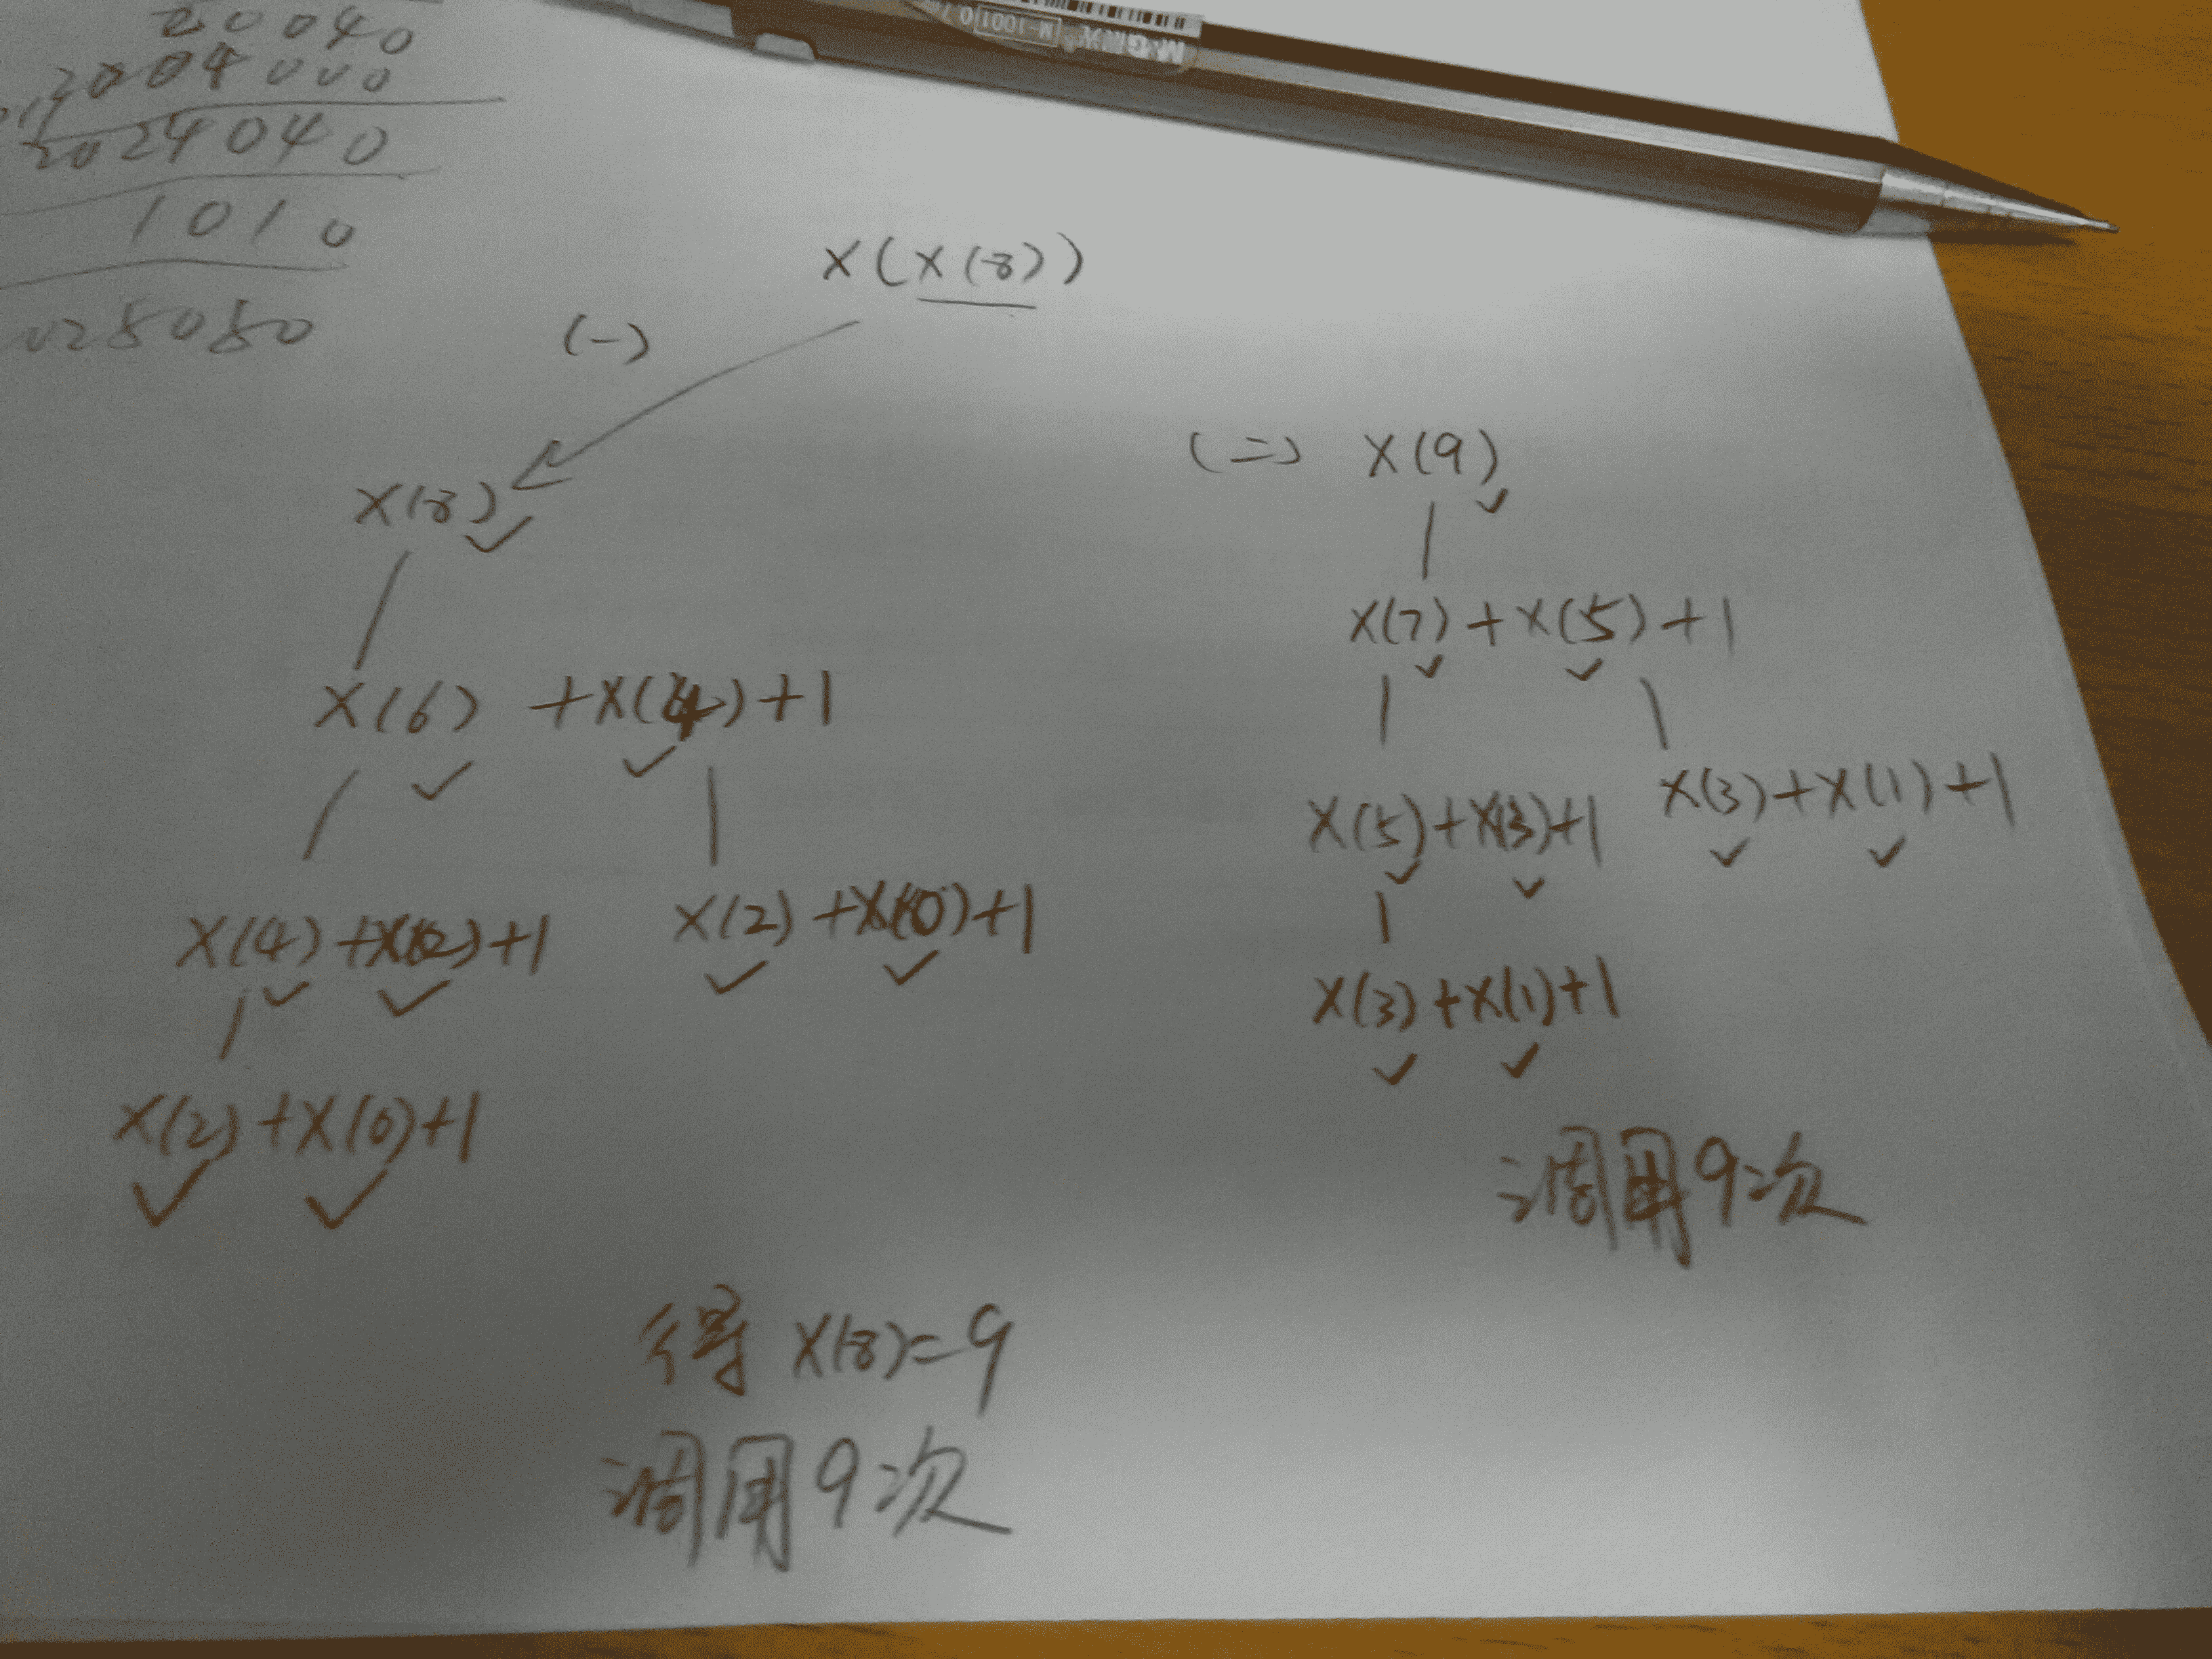 20040
2004000
2024040
1010
028080
M&G晨光 M-1001 0.7
X(X(8))
(一)
X(8)
X(6) +X(4)+1
X(4)+X(2)+1 X(2)+X(0)+1
X(2)+X(0)+1
得 X(8)=9
调用9次
(二) X(9)
X(7)+X(5)+1
X(5)+X(3)+1 X(3)+X(1)+1
X(3)+X(1)+1
调用9次